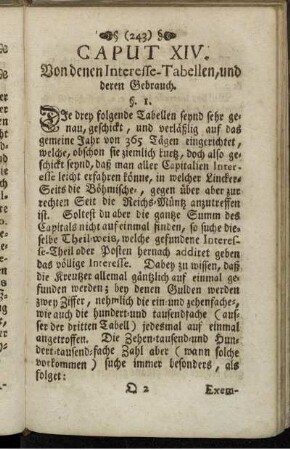 (243)
CAPUT XIV.
Von denen Interesse-Tabellen, und
deren Gebrauch.
§. 1.
Die drey folgende Tabellen seynd sehr ge-
nau, geschickt, und verläßlig auf das
gemeine Jahr von 365 Tägen eingerichtet,
welche, obschon sie ziemlich kurtz, doch also ge-
schickt seynd, daß man aller Capitalien Inter-
esse leicht erfahren könne, in welcher Lincker
Seits die Böhmische-, gegen über aber zur
rechten Seit die Reichs-Müntz anzutreffen
ist. Soltest du aber die gantze Summ des
Capitals nicht auf einmal finden, so suche die-
selbe Theil-weis, welche gefundene Interes-
se-Theil oder Posten hernach addiret geben
das völlige Interesse. Dabey zu wissen, daß
die Kreutzer allemal gäntzlich auf einmal ge-
funden werden; bey denen Gulden werden
zwey Ziffer, nehmlich die ein-und zehenfache-
wie auch die hundert-und tausendfache (aus-
ser der dritten Tabell) jedesmal auf einmal
angetroffen. Die Zehen-tausend-und Hun-
dert-tausend-fache Zahl aber (wann solche
vorkommen) suche immer besonders, als
folget:
Q 2 Exem-